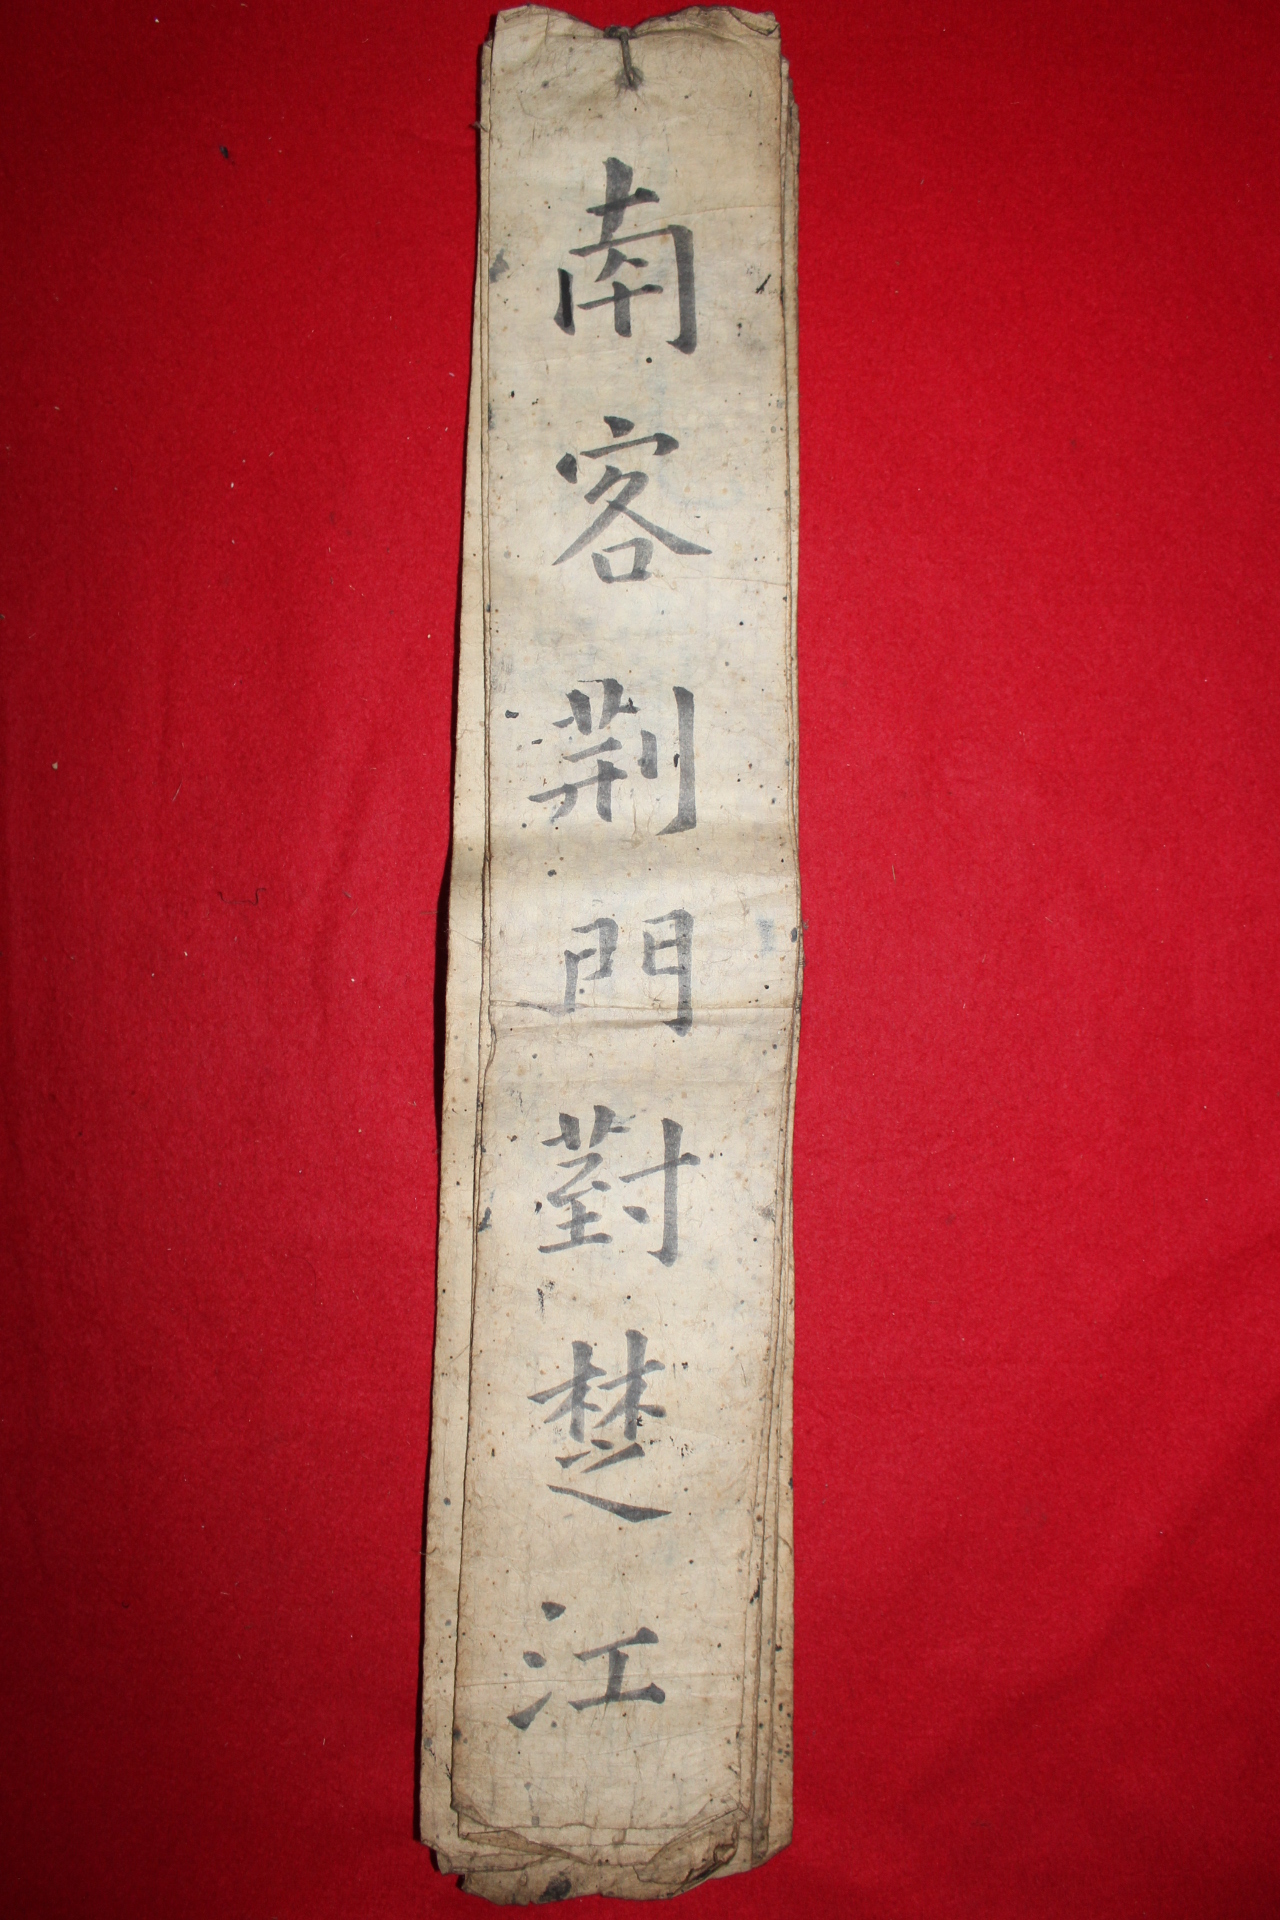 南客荆門對楚江